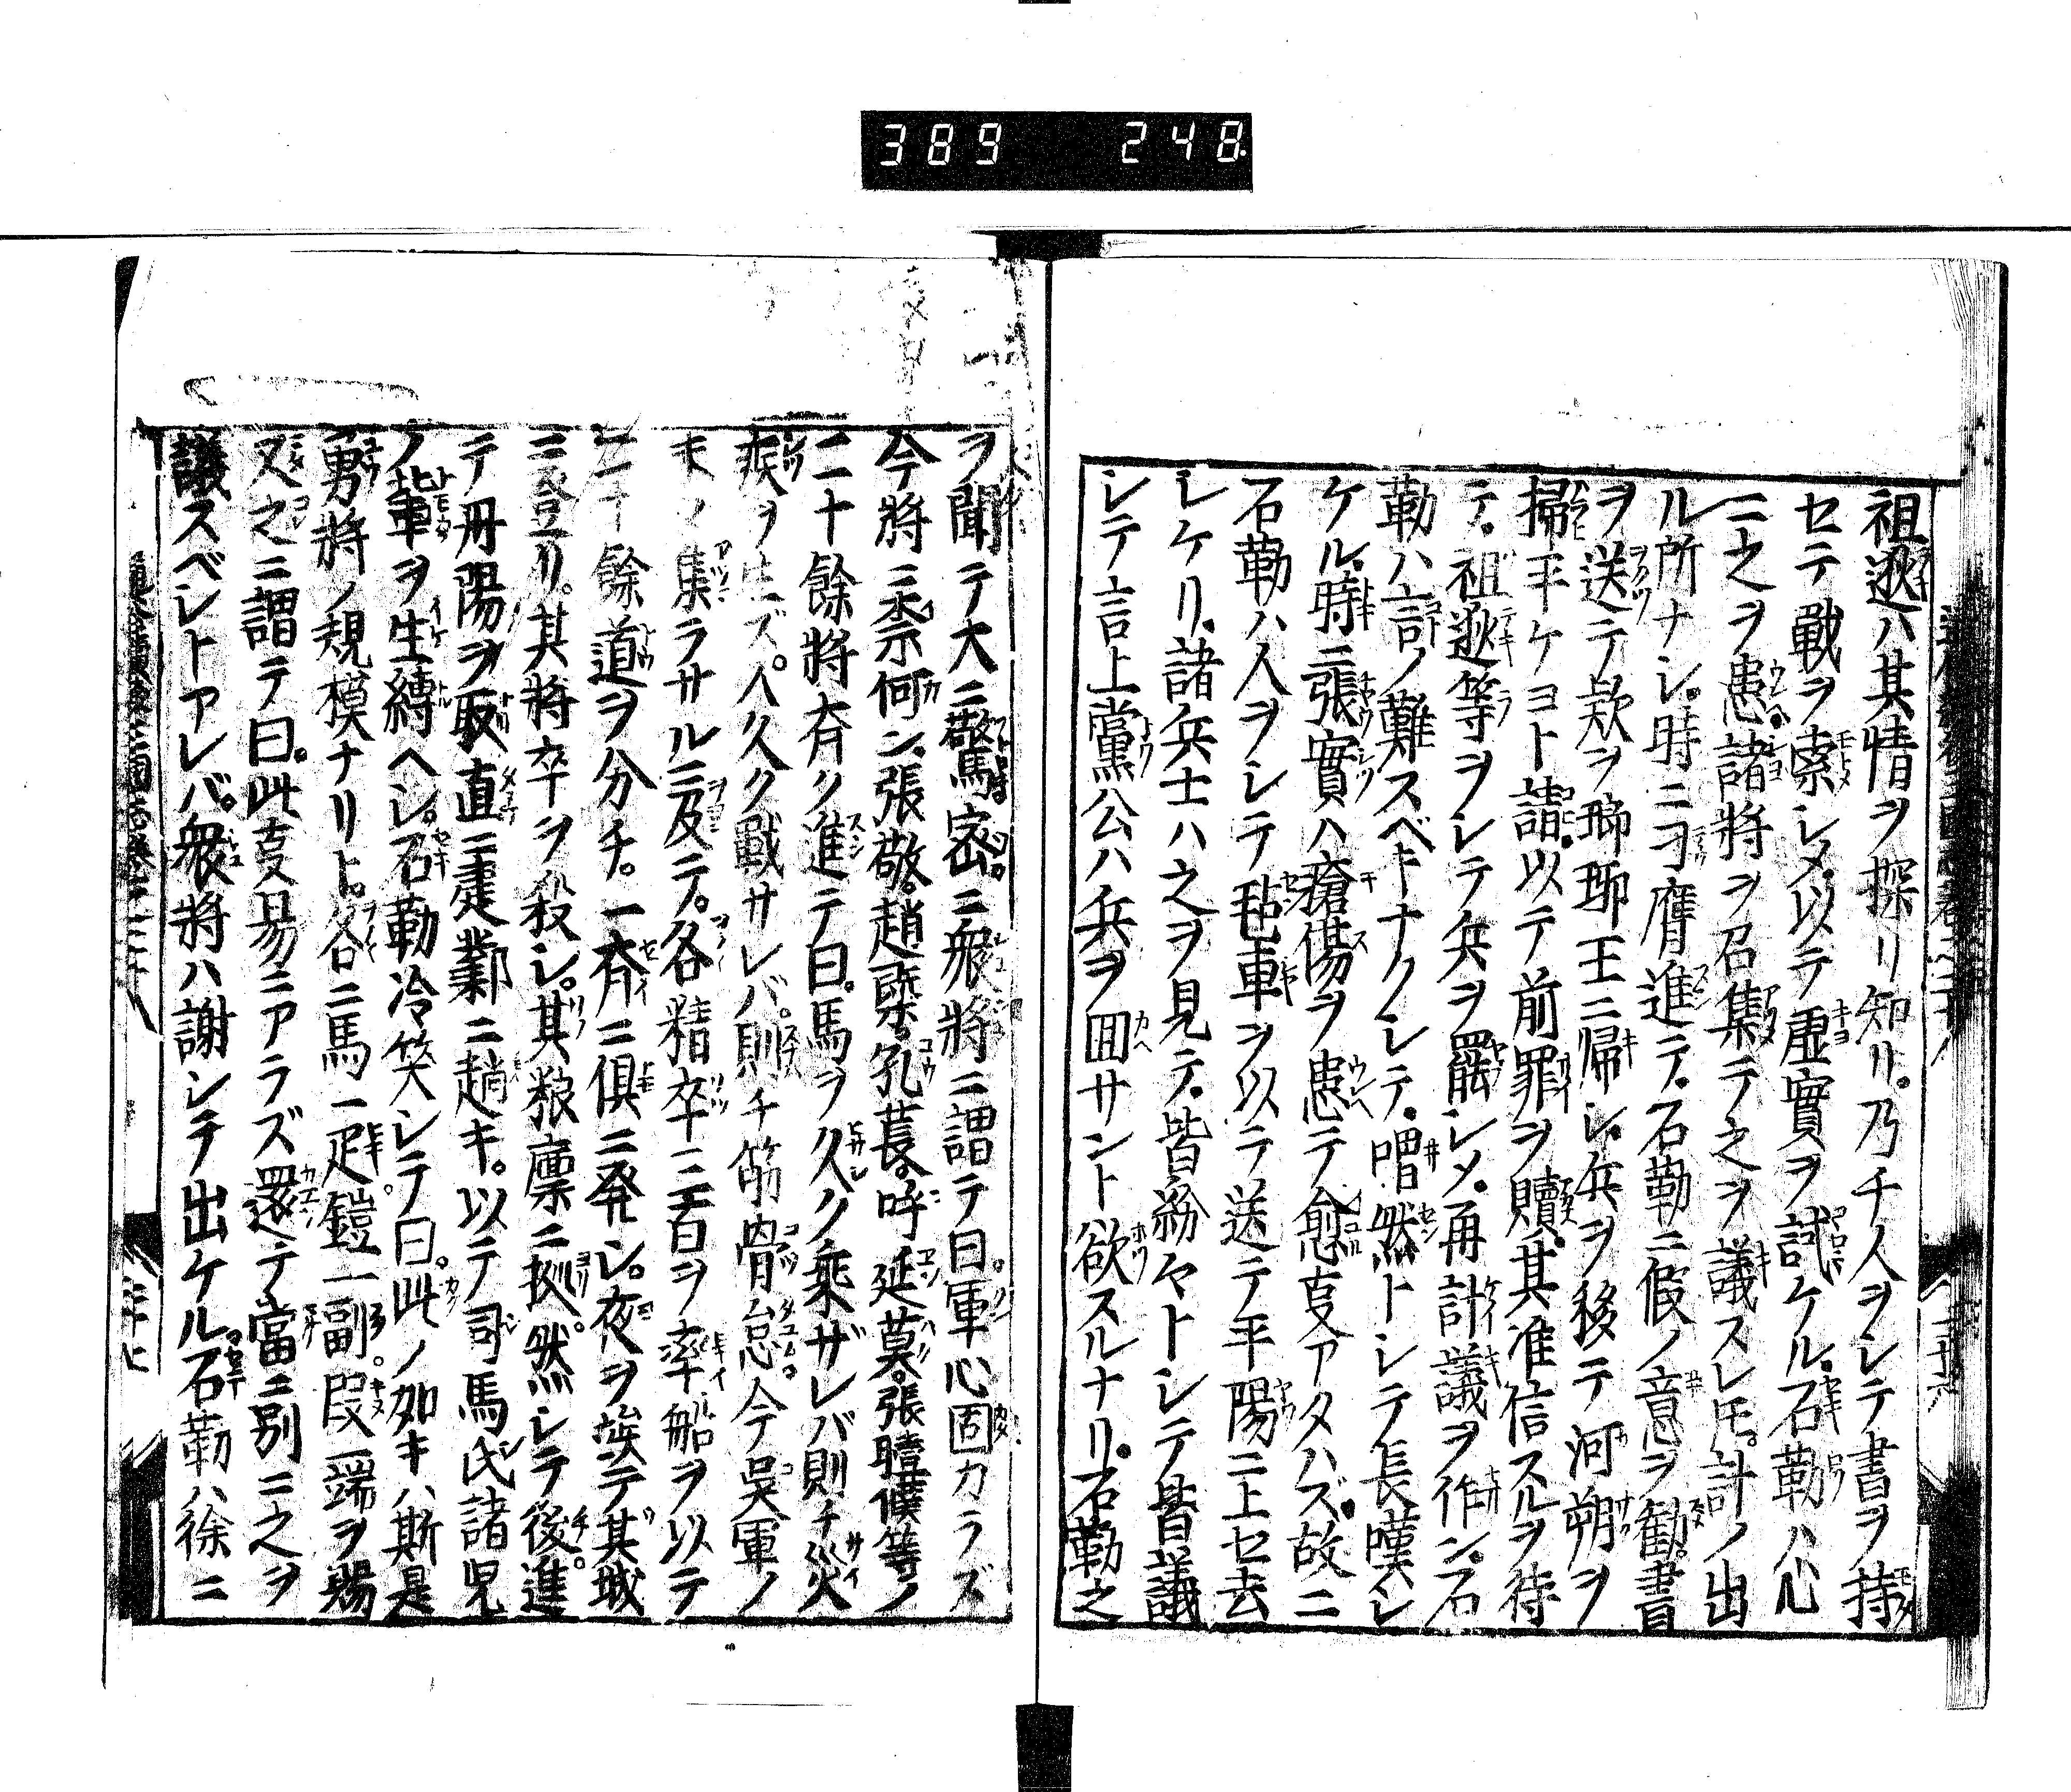 389 248
祖逖ハ其情ヲ探リ知リ。乃チ人ヲシテ書ヲ持
セテ戰ヲ索シメ。以テ虚實ヲ試ケル。石勒ハ心
ニ之ヲ患。諸將ヲ召集テ之ヲ議スレ𪜈。計ノ出
ル所ナシ。時ニ刁膺進テ。石勒ニ假ノ意ヲ勸。書
ヲ送テ欵ヲ瑯琊王ニ歸シ。兵ヲ移テ河朔ヲ
掃平ケヨト請。以テ前罪ヲ贖。其准信スルヲ待
テ。祖逖等ヲシテ兵ヲ罷シメ。再計議ヲ作ン。石
勒ハ言ノ難スベキナクシテ。喟然トシテ長嘆シ
ケル。時ニ張實ハ瘡傷ヲ患テ愈叓アタハズ。故ニ
石勒ハ人ヲシテ毡車ヲ以テ送テ平陽ニ上セ去
シケリ。諸兵士ハ之ヲ見テ。皆紛々トシテ皆議
シテ言上黨公ハ兵ヲ囬サント欲スルナリ。石勒之
ヲ聞テ大ニ驚。密ニ衆將ニ謂テ曰。軍心固カラズ
今將ニ柰何ン。張敬。趙槩。孔萇。呼延莫。張曀僕等ノ
二十餘將斉ク進テ曰。馬ヲ久ク乘ザレバ則チ災
疾ヲ生ズ。人久ク戰サレバ。則チ筋骨怠。今呉軍ノ
未ノ集ラサルニ及テ。各精卒三百ヲ率船ヲ以テ
二十餘道ヲ分チ。一斉ニ俱ニ発シ。夜ヲ埃テ其城
ニ登リ。其將卒ヲ殺シ。其粮廪ニ拠。然シテ後進
テ丹陽ヲ取直ニ建鄴ニ趙キ。以テ司馬氏諸児
ノ輩ヲ生縛ヘシ。石勒冷笑シテ曰。此ノ如キハ斯是
勇將ノ規模ナリト。各ニ馬一疋鎧一副。段一端ヲ賜
又之ニ謂テ曰。此叓易ニアラズ還テ當ニ別ニ之ヲ
議スベシトアレバ。衆將ハ謝シテ出ケル。石勒ハ徐ニ